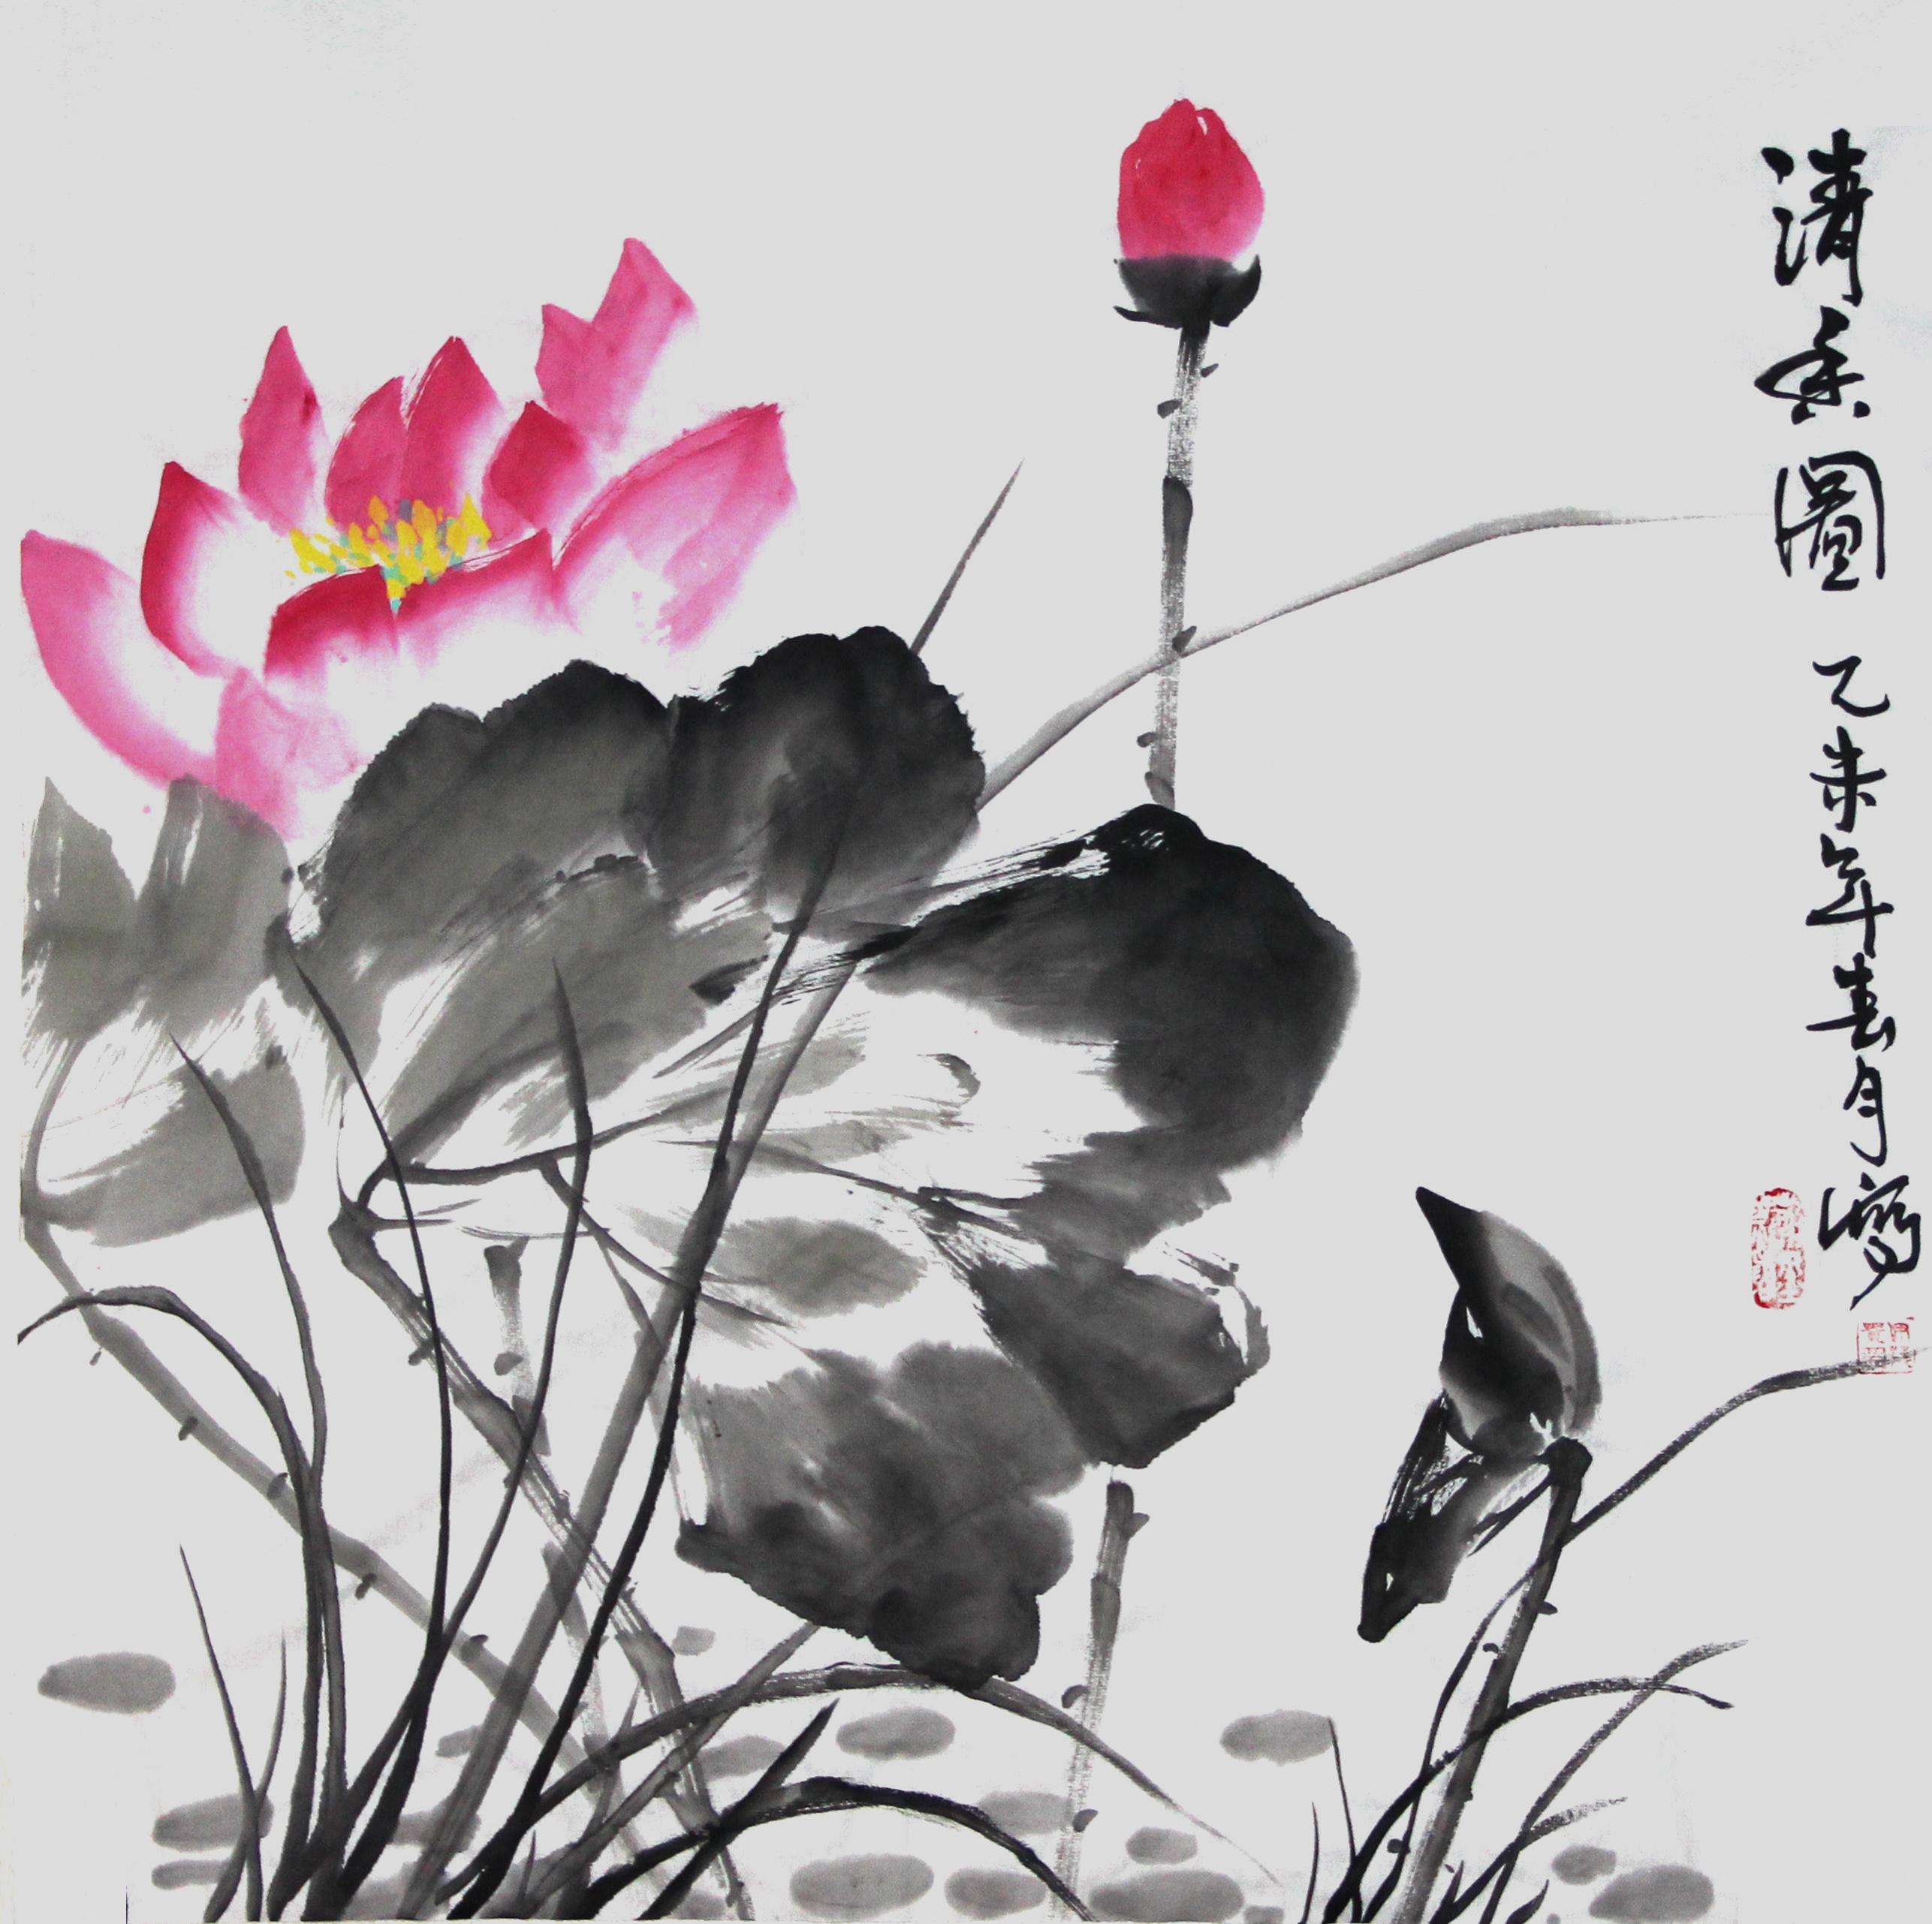 清香圖
乙未年春月寫